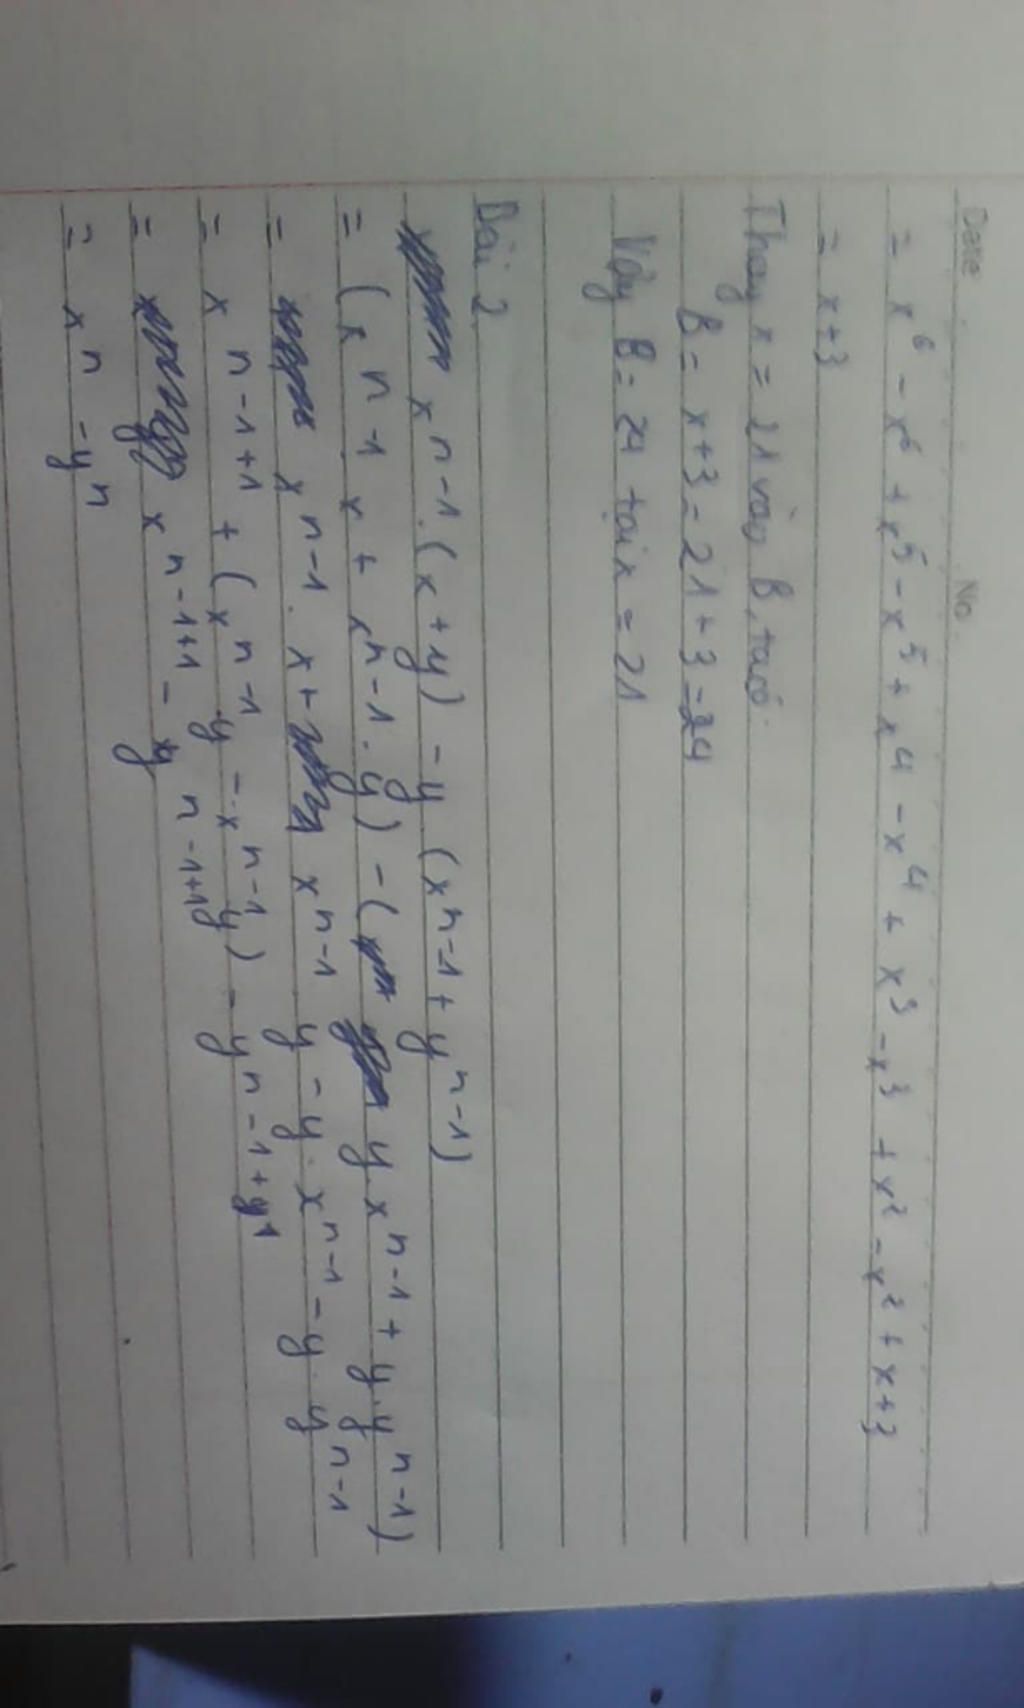 Date No.
= x⁶ - x⁶ + x⁵ - x⁵ + x⁴ - x⁴ + x³ - x³ + x² - x² + x + 3
= x + 3
Thay x = 21 vào B, ta có:
B = x + 3 = 21 + 3 = 24
Vậy B = 24 tại x = 21
Bài 2
xⁿ⁻¹.(x + y) - y (xⁿ⁻¹ + yⁿ⁻¹)
= (xⁿ⁻¹ x + xⁿ⁻¹. y) - ( y. xⁿ⁻¹ + y. yⁿ⁻¹)
= xⁿ⁻¹. x + xⁿ⁻¹ y - y. xⁿ⁻¹ - y. yⁿ⁻¹
= xⁿ⁻¹⁺¹ + (xⁿ⁻¹. y - xⁿ⁻¹ y) - yⁿ⁻¹⁺¹
= xⁿ⁻¹⁺¹ - yⁿ⁻¹⁺¹
= xⁿ - yⁿ